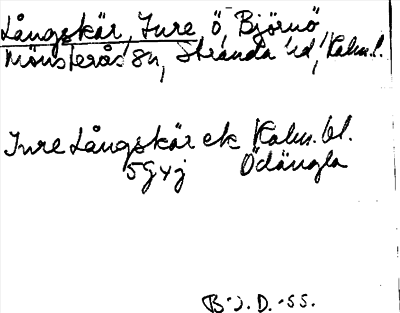 Långskär, Inre ö, Björnö
Mönsterås sn, Stranda hd, Kalm. l.
Inre Långskär ek Kalm. bl.
5G4j Ödängla
B.J.D.-55.